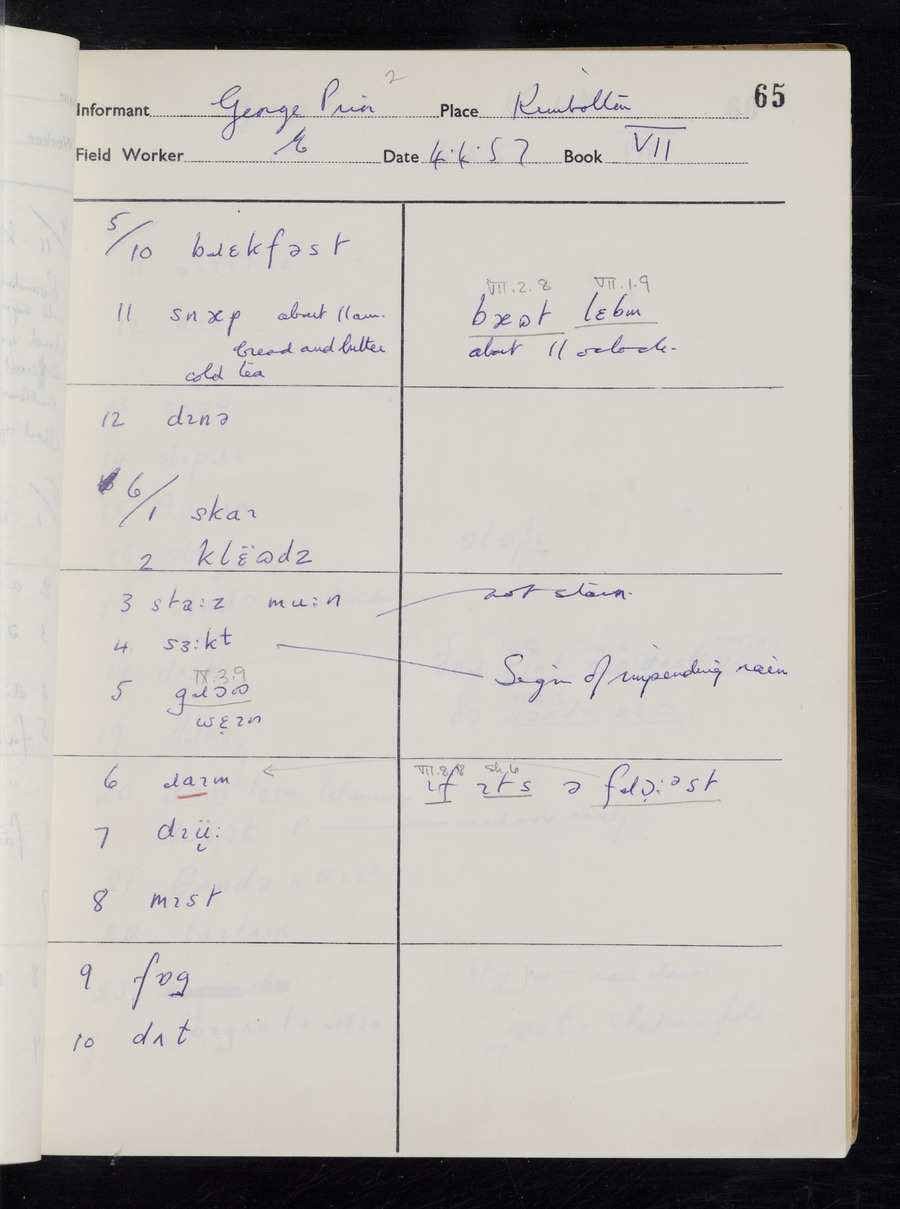 65
2
Informant George Prior Place Kimbolton
Field Worker Date 4.4.57 Book VII
5/10 bɹɛkfəst
11 snæp about 11am.
bread and butter
cold tea
VII.2.8 VII.1.9
bæʊt lɛbm
about 11 oclock.
12 dɪnə
6/1 skaɪ
2 klɛ̈ʊdz
3 staːz muːn
not stain.
4 sɜːkt
Sign of impending rain
IX.3.9
5
6
VII.8.8
ɪf ɪts ə
7 dɪü̜ː
8 mɪst
9 fɒg
10